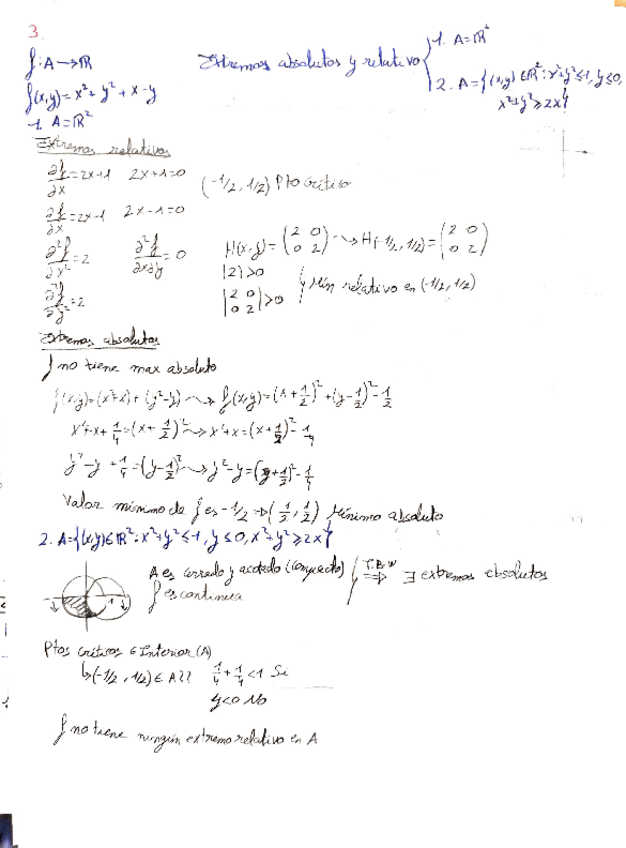 3.
f: A → ℝ
f(x,y) = x² + y² + x - y
1. A = ℝ²
Extremos absolutos y relativo { 1. A = ℝ²
2. A = {(x,y) ∈ ℝ²: x²+y² ≤ 1, y ≤ 0,
x²+y² ≥ 2x}
Extremos relativos
∂f/∂x = 2x+1 2x+1=0
(-1/2, 1/2) Pto Crítico
∂f/∂x = 2x-1 2x-1=0
∂²f/∂x² = 2 ∂²f/∂x∂y = 0 H(x,y) = (2 0 0 2) ⇝ H(-1/2, 1/2) = (2 0 0 2)
∂²f/∂y² = 2 |2|>0 |2 0 0 2|>0 } Mín relativo en (-1/2, 1/2)
Extremos absolutos
f no tiene max absoluto
f(x,y) = (x²+x) + (y²-y) ⇝ f(x,y) = (x + 1/2)² + (y - 1/2)² - 1/2
x²+x+1/4 = (x+1/2)² ⇝ x²+x = (x+1/2)² - 1/4
y²-y+1/4 = (y-1/2)² ⇝ y²-y = (y+1/2)² - 1/4
Valor mínimo de f es -1/2 ⇒ (1/2, 1/2) Mínimo absoluto
2. A = {(x,y) ∈ ℝ²: x²+y² ≤ 1, y ≤ 0, x²+y² ≥ 2x}
A es cerrado y acotado (compacto)
f es continua } T.B.W ⇒ ∃ extremos absolutos
Ptos críticos ∈ Interior (A)
↳ (-1/2, 1/2) ∈ A?? 1/4 + 1/4 < 1 Si
y<0 No
f no tiene ningún extremo relativo en A